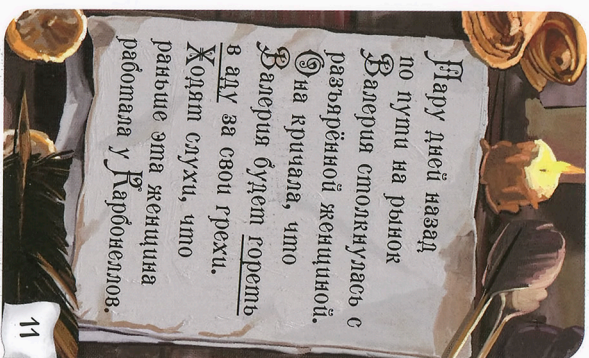 Пару дней назад
по пути на рынок
Валерия столкнулась с
разъярённой женщиной.
Она кричала, что
Валерия будет гореть
в аду за свои грехи.
Ходят слухи, что
раньше эта женщина
работала у Карбонеллов.
11